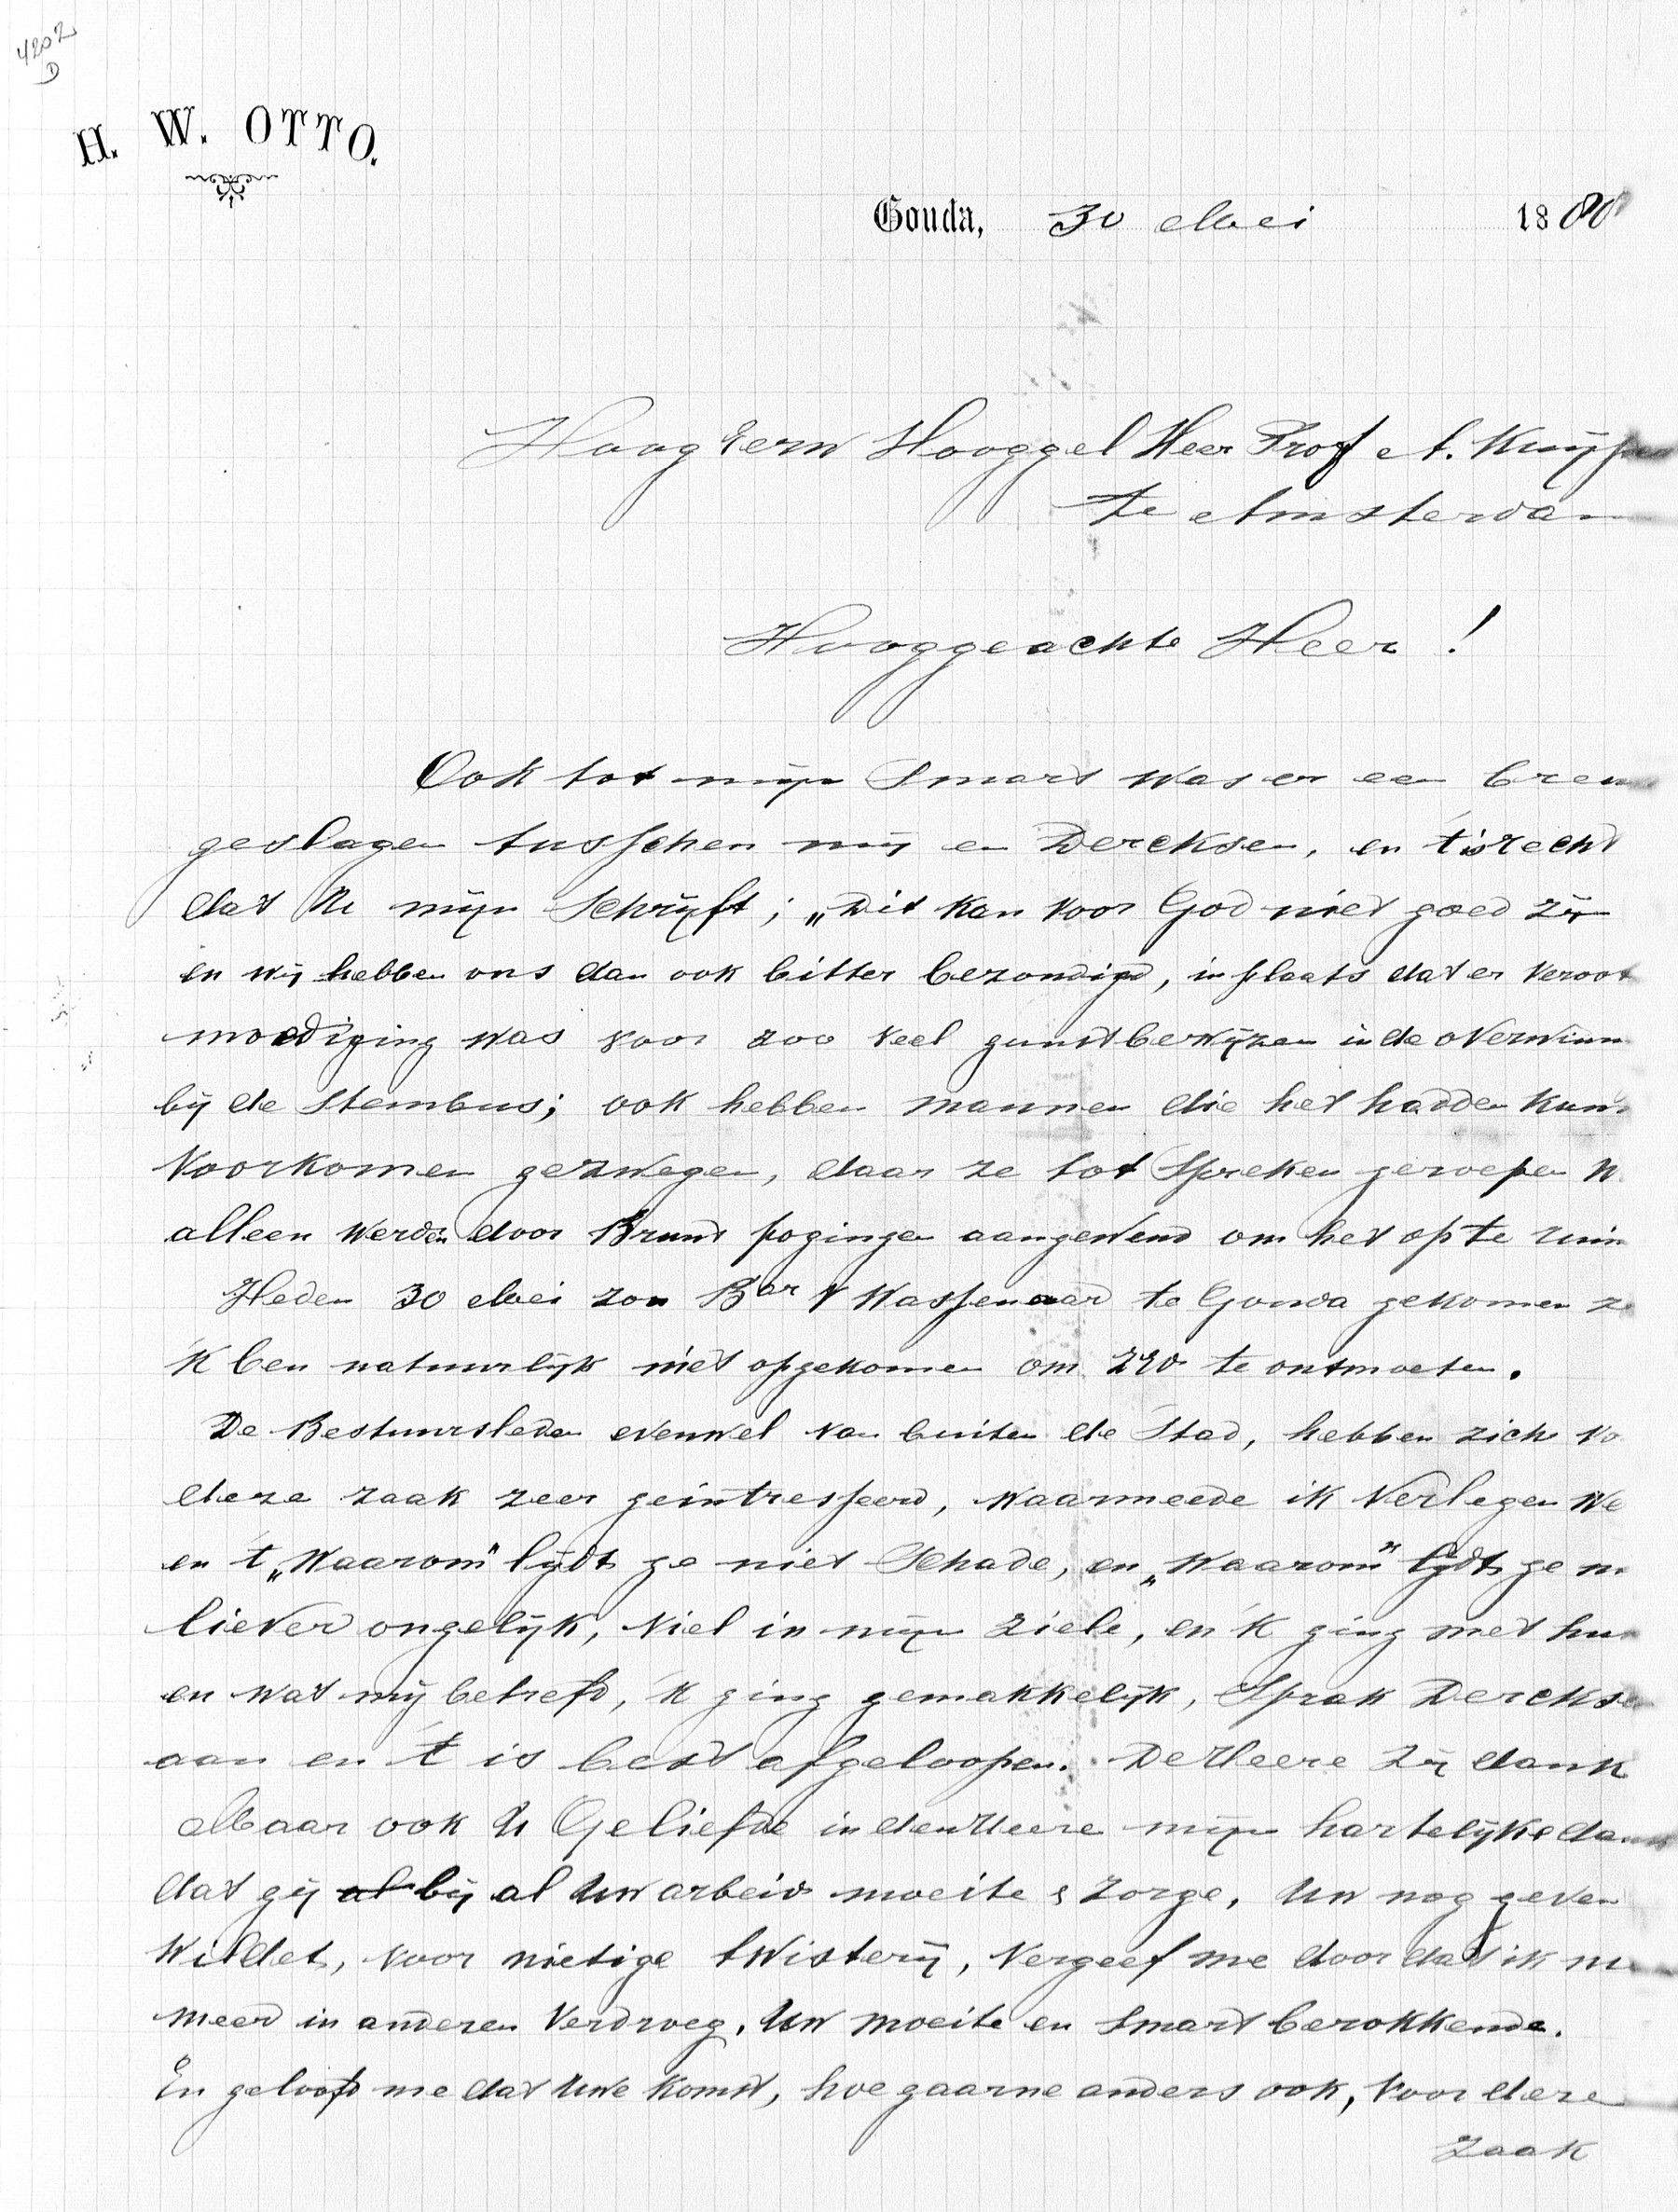 4202
D
H. W. OTTO.
Gouda, 30 Mei 1888
HoogEerw Hooggel Heer Prof A. Kuyper
te Amsterdam
Hooggeachte Heer !
Ook tot mijn Smart was er een breu
geslagen tusschen mij en Dercksen, en 't is recht
dat U mijn Schrijft; „Dit kan voor God niet goed zijn
en wij hebben ons dan ook bitter bezondigd, in plaats dat er veroot
moediging was voor zoo veel gunstbewijzen in de overwinn
bij de Stembus; ook hebben mannen die het hadden kun
voorkomen gezwegen, daar ze tot Spreken geroepen w
alleen werden door Brunt pogingen aangewend om het op te ruim
Heden 30 Mei zou Bar v Wassenaar te Gouda gekomen z
'K ben natuurlijk niet opgekomen om ZEd te ontmoeten.
De Bestuursleden evenwel van buiten de Stad, hebben zich vo
deze zaak zeer geïntresseerd, waarmeede ik verlegen we
en 't „Waarom" lijdt ge niet Schade, en „Waarom" lijdt ge n
liever ongelijk, viel in mijn ziele, en 'K ging met hun
en wat mij betreft, 'K ging gemakkelijk, Sprak Dercksen
aan en 't is best afgeloopen. De Heere zij dank
Maar ook U Geliefde in den Heere mijn hartelijke dank
dat gij al bij al Uw arbeid moeite & zorge, Uw nog geven
wildet, voor nietige twisterij, Vergeef me door dat ik n
meer in anderen verdroeg, Uw moeite en Smart berokkende.
En geloof me dat Uwe komst, hoe gaarne anders ook, voor deze
zaak